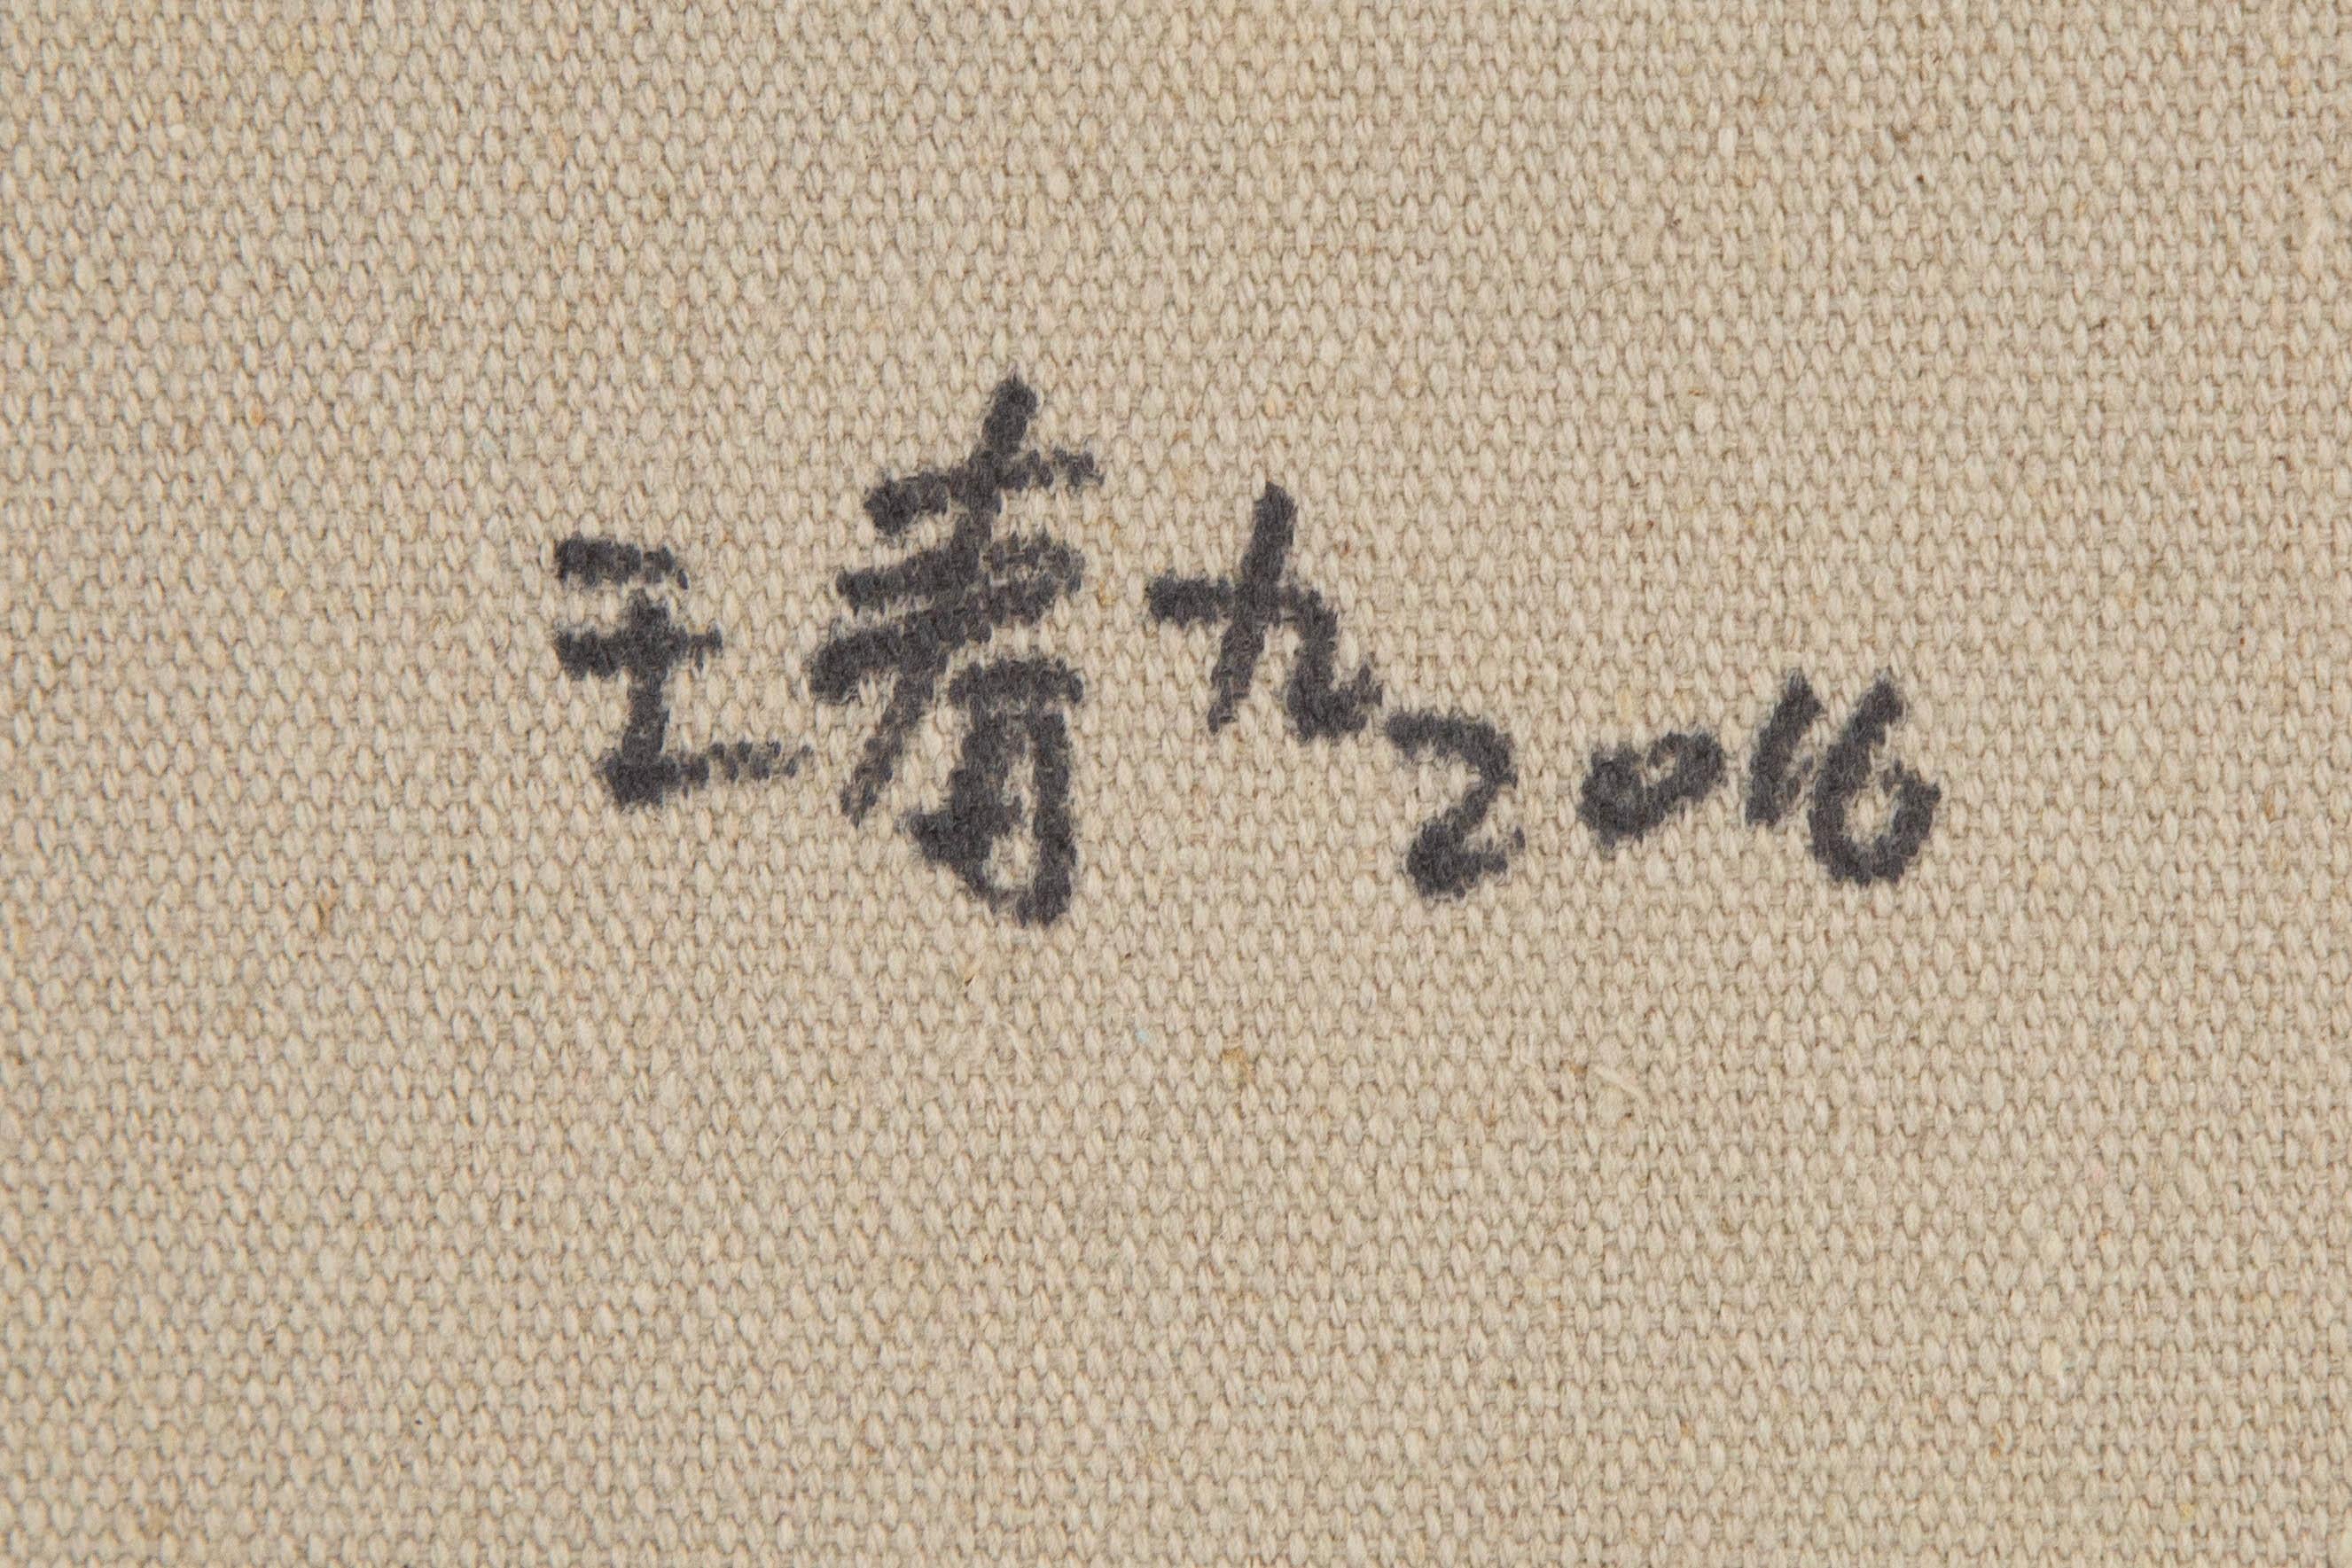 王春九 2016